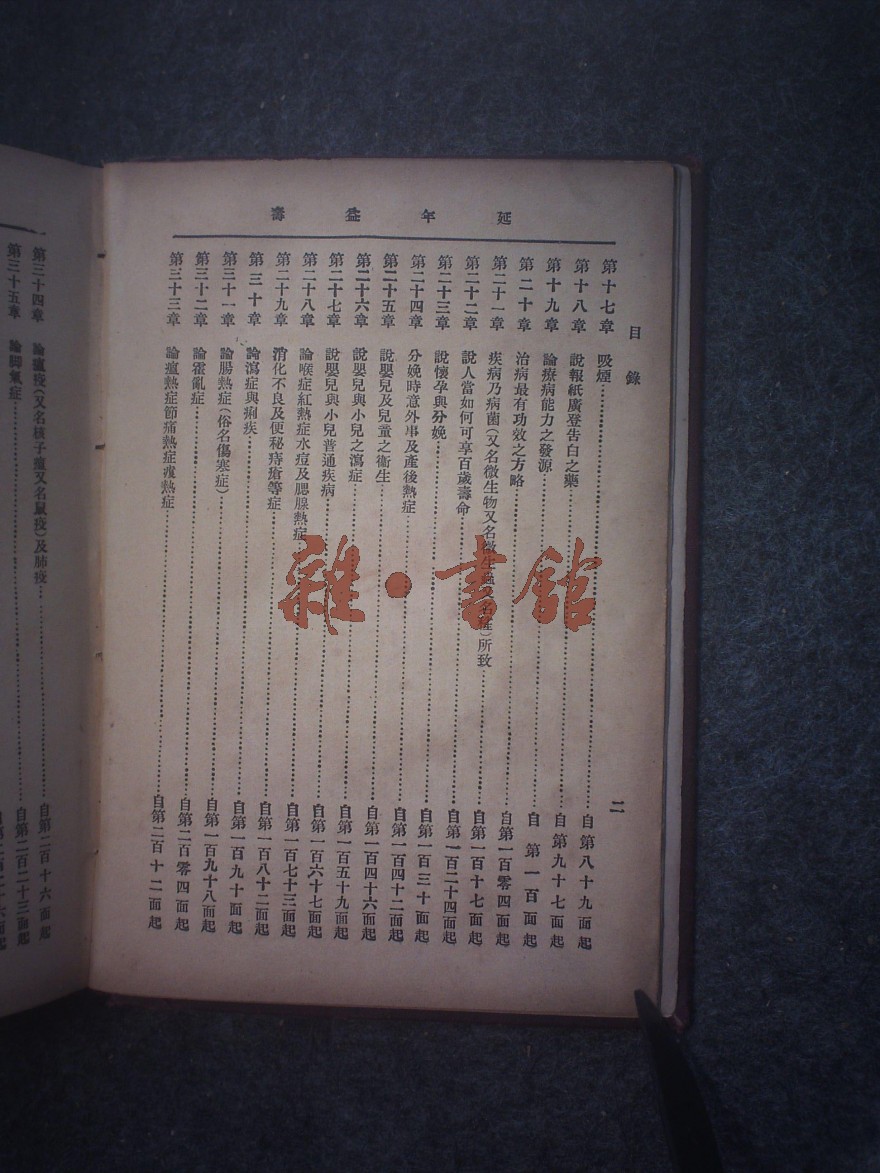 延年益壽
目錄
二
第十七章 吸煙 自第八十九面起
第十八章 說報紙廣登告白之藥 自第九十七面起
第十九章 論療病能力之發源 自第一百面起
第二十章 治病最有功效之方略 自第一百零四面起
第二十一章 疾病乃病菌(又名微生物又名微生蟲又名)所致 自第一百十七面起
第二十二章 說人當如何可享百歲壽命 自第一百二十四面起
第二十三章 說懷孕與分娩 自第一百三十面起
第二十四章 分娩時意外事及產後熱症 自第一百四十二面起
第二十五章 說嬰兒及兒童之衛生 自第一百四十六面起
第二十六章 說嬰兒與小兒之瀉症 自第一百五十九面起
第二十七章 說嬰兒與小兒普通疾病 自第一百六十七面起
第二十八章 論喉症紅熱症水痘及腮腺熱症 自第一百七十三面起
第二十九章 消化不良及便秘痔瘡等症 自第一百八十二面起
第三十章 論瀉症與痢疾 自第一百九十面起
第三十一章 論腸熱症(俗名傷寒症) 自第一百九十八面起
第三十二章 論霍亂症 自第二百零四面起
第三十三章 論瘟熱症節痛熱症瘧熱症 自第二百十二面起
第三十四章 論瘟疫(又名核子瘟又名鼠疫)及肺疫 自第二百十六面起
第三十五章 論脚氣症 自第二百二十三面起
自第二百二十六面起
雜·書館